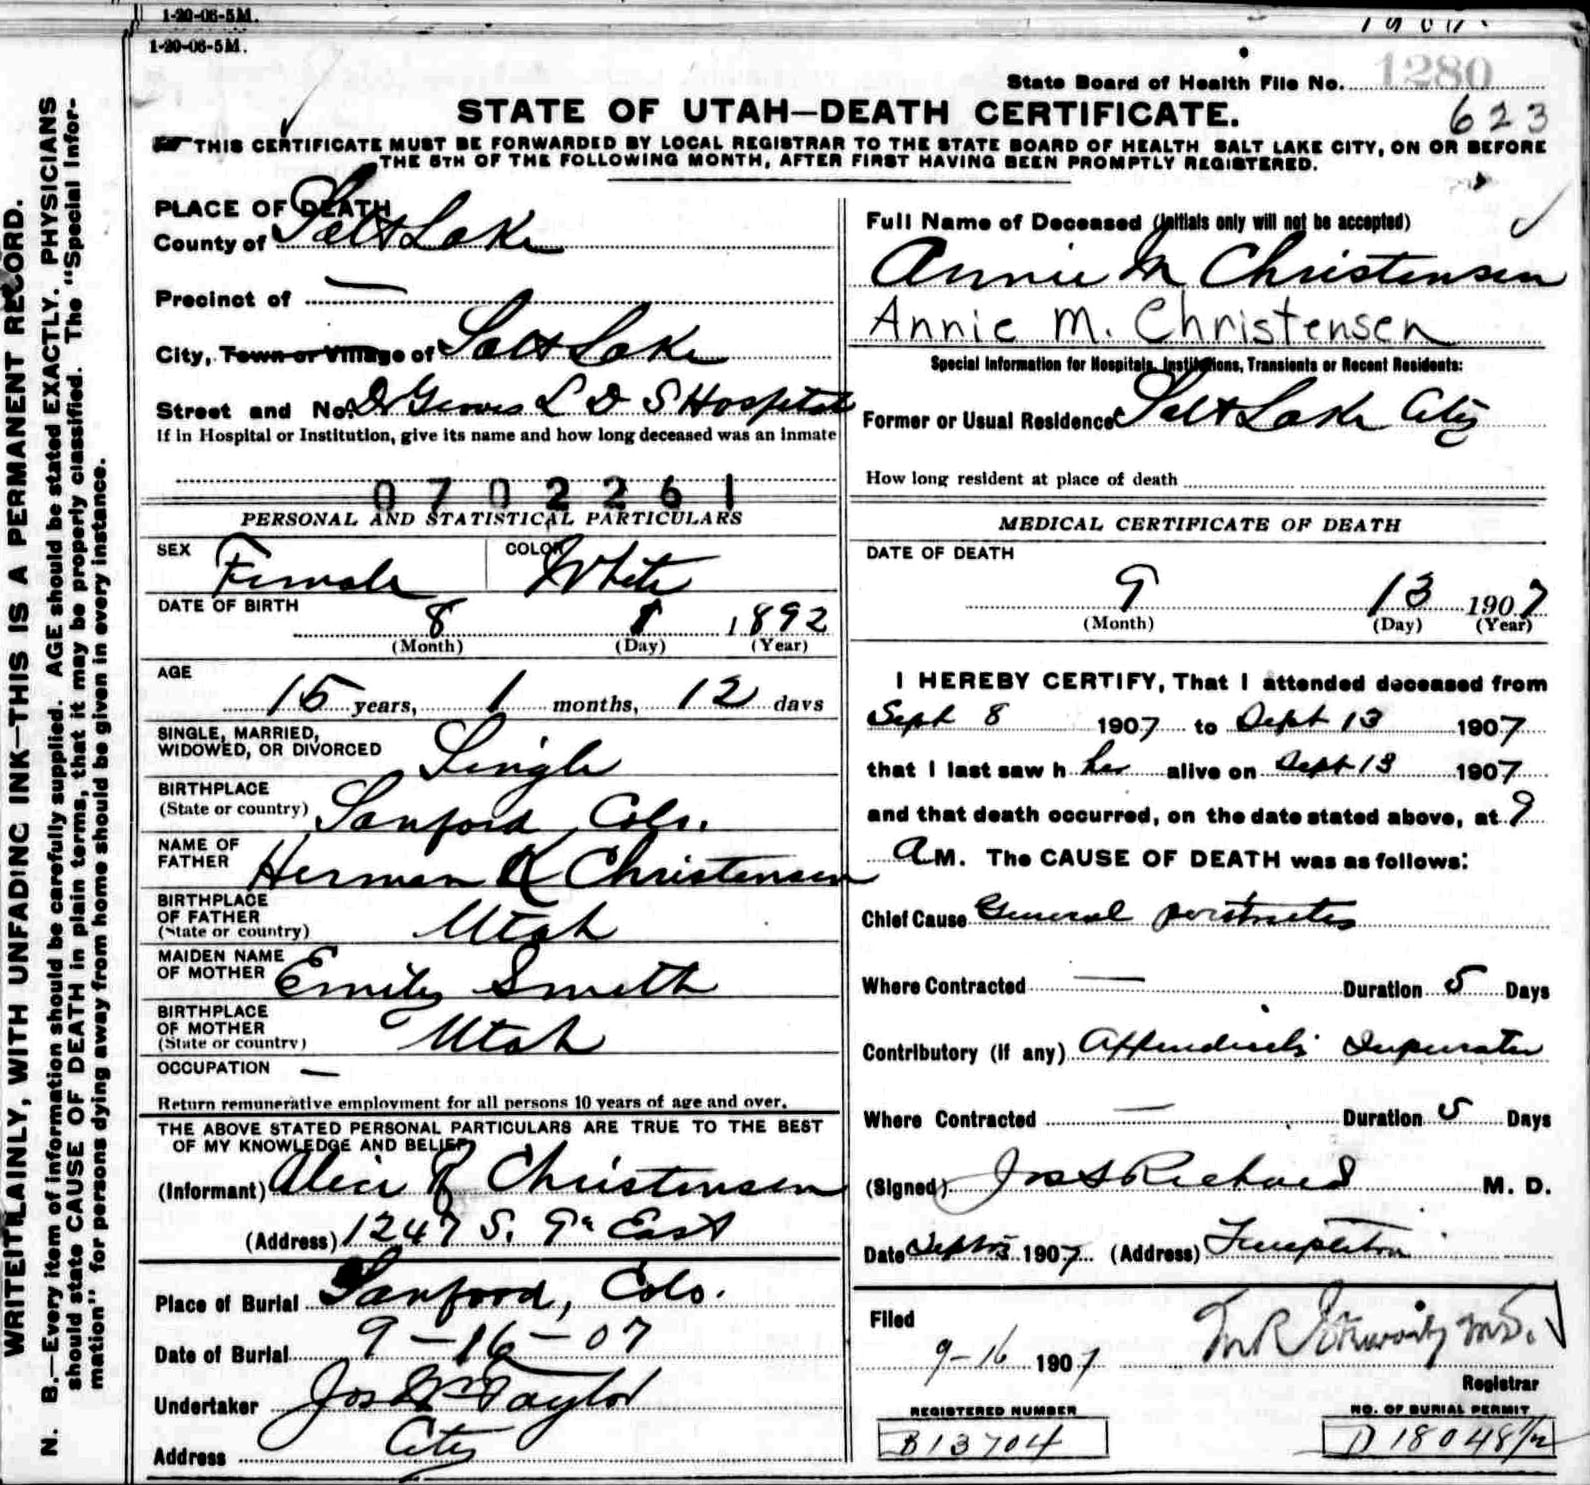 1-20-06-5M.
1-20-06-5M.
State Board of Health File No. 1280
623
STATE OF UTAH—DEATH CERTIFICATE.
THIS CERTIFICATE MUST BE FORWARDED BY LOCAL REGISTRAR TO THE STATE BOARD OF HEALTH SALT LAKE CITY, ON OR BEFORE
THE 5TH OF THE FOLLOWING MONTH, AFTER FIRST HAVING BEEN PROMPTLY REGISTERED.
WRITE PLAINLY, WITH UNFADING INK—THIS IS A PERMANENT RECORD.
N. B.—Every item of information should be carefully supplied. AGE should be stated EXACTLY. PHYSICIANS
should state CAUSE OF DEATH in plain terms, that it may be properly classified. The "Special Infor-
mation" for persons dying away from home should be given in every instance.
PLACE OF DEATH
County of Salt Lake
Precinct of —
City, Town or Village of Salt Lake
Street and No. Dr Groves L D S Hospital
If in Hospital or Institution, give its name and how long deceased was an inmate
0702261
PERSONAL AND STATISTICAL PARTICULARS
SEX Female COLOR White
DATE OF BIRTH
8 1 1892
(Month) (Day) (Year)
AGE
15 years, 1 months, 12 days
SINGLE, MARRIED,
WIDOWED, OR DIVORCED Single
BIRTHPLACE
(State or country) Sanford, Colo.
NAME OF
FATHER Herman K Christensen
BIRTHPLACE
OF FATHER
(State or country) Utah
MAIDEN NAME
OF MOTHER Emily Smith
BIRTHPLACE
OF MOTHER
(State or country) Utah
OCCUPATION —
Return remunerative employment for all persons 10 years of age and over.
THE ABOVE STATED PERSONAL PARTICULARS ARE TRUE TO THE BEST
OF MY KNOWLEDGE AND BELIEF
(Informant) Alice R Christensen
(Address) 1247 S. 9th East
Place of Burial Sanford, Colo.
Date of Burial 9-16-07
Undertaker Jos Wm Taylor
Address City
Full Name of Deceased (Initials only will not be accepted)
Annie M Christensen
Annie M. Christensen
Special Information for Hospitals, Institutions, Transients or Recent Residents:
Former or Usual Residence Salt Lake City
How long resident at place of death
MEDICAL CERTIFICATE OF DEATH
DATE OF DEATH
9 13 1907
(Month) (Day) (Year)
I HEREBY CERTIFY, That I attended deceased from
Sept 8 1907 to Sept 13 1907
that I last saw h her alive on Sept 13 1907
and that death occurred, on the date stated above, at 9
A M. The CAUSE OF DEATH was as follows:
Chief Cause General
Where Contracted — Duration 5 Days
Contributory (if any) Appendicitis
Where Contracted — Duration 5 Days
(Signed) Jos S Richards M. D.
Date Sept 1907 (Address) Templeton
Filed
9-16 1907
Registrar
REGISTERED NUMBER
B13704
NO. OF BURIAL PERMIT
D 18048 1/2